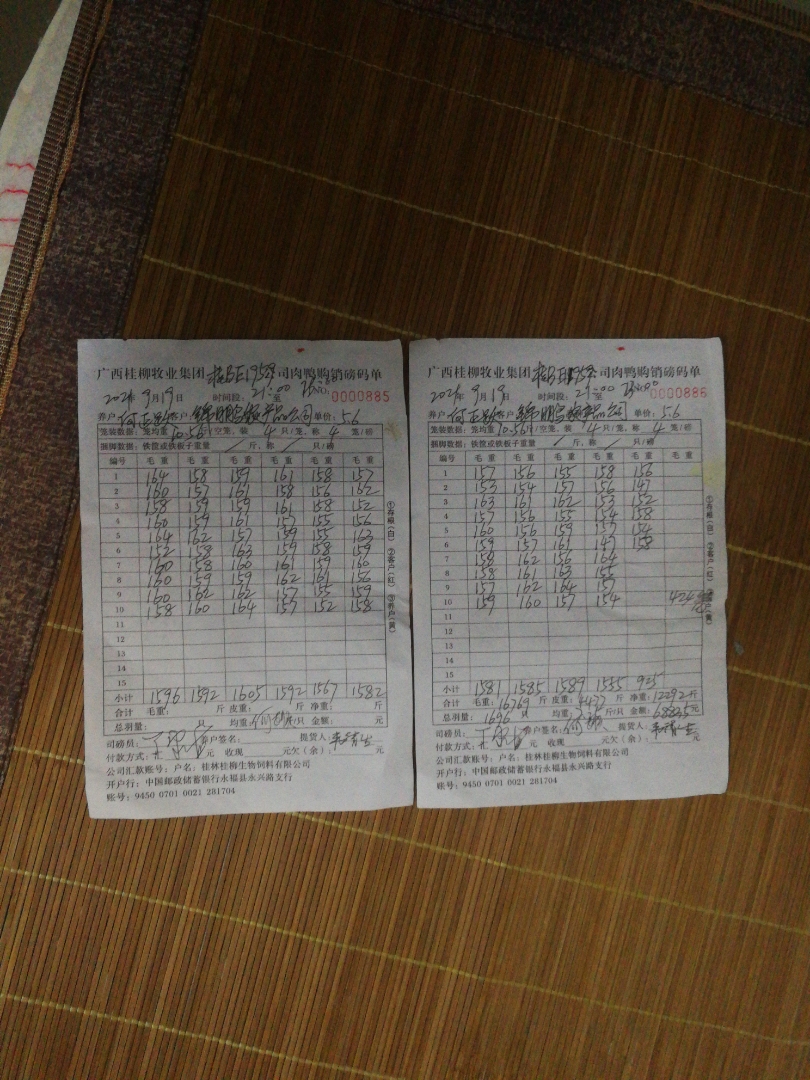 广西桂柳牧业集团 司肉鸭购销磅码单
9月19日 时间段: 21:00 至
0000885
养户 客户 单价: 5.6
笼装数据: 笼均重 10.56斤/空笼、装 4 只/笼、称 4 笼/磅
捆脚数据: 铁筐或铁板子重量 / 斤、称 / 只/磅
编号 毛重 毛重 毛重 毛重 毛重 毛重
1 164 158 159 161 158 157
2 160 157 161 158 156 162
3 158 159 159 161 158 152
4 160 159 161 157 155 156
5 164 162 157 159 155 163
6 152 158 163 159 158 159
7 160 158 160 161 159 160
8 160 159 159 162 161 156
9 160 162 162 157 155 159
10 158 160 164 157 152 158
11
12
13
14
15
小计 1596 1592 1605 1592 1567 1582
合计 毛重: 斤 皮重: 斤 净重: 斤
总羽量: 只 均重: 斤/只 金额: 元
司磅员: 养户签名: 提货人:
付款方式: 元 收现 元欠(余): 元
公司汇款账号: 户名: 桂林桂柳生物饲料有限公司
开户行: 中国邮政储蓄银行永福县永兴路支行
账号: 9450 0701 0021 281704
①存根(白) ②客户(红) ③养户(黄)
广西桂柳牧业集团 司肉鸭购销磅码单
9月19日 时间段: 21:00 至
0000886
养户 客户 单价: 5.6
笼装数据: 笼均重 10.56斤/空笼、装 4 只/笼、称 4 笼/磅
捆脚数据: 铁筐或铁板子重量 / 斤、称 / 只/磅
编号 毛重 毛重 毛重 毛重 毛重 毛重
1 157 156 155 158 156
2 153 154 157 156 147
3 163 161 162 153 152
4 157 156 155 154 158
5 160 156 159 157 154
6 159 157 161 147 158
7 158 162 156 164
8 158 161 163 155
9 157 162 164 157
10 159 160 157 154 424
11
12
13
14
15
小计 1581 1585 1589 1555 925
合计 毛重: 16769 斤 皮重: 4477 斤 净重: 12292斤
总羽量: 1696 只 均重: 斤/只 金额: 元
司磅员: 养户签名: 提货人:
付款方式: 元 收现 元欠(余): 元
公司汇款账号: 户名: 桂林桂柳生物饲料有限公司
开户行: 中国邮政储蓄银行永福县永兴路支行
账号: 9450 0701 0021 281704
①存根(白) ②客户(红)